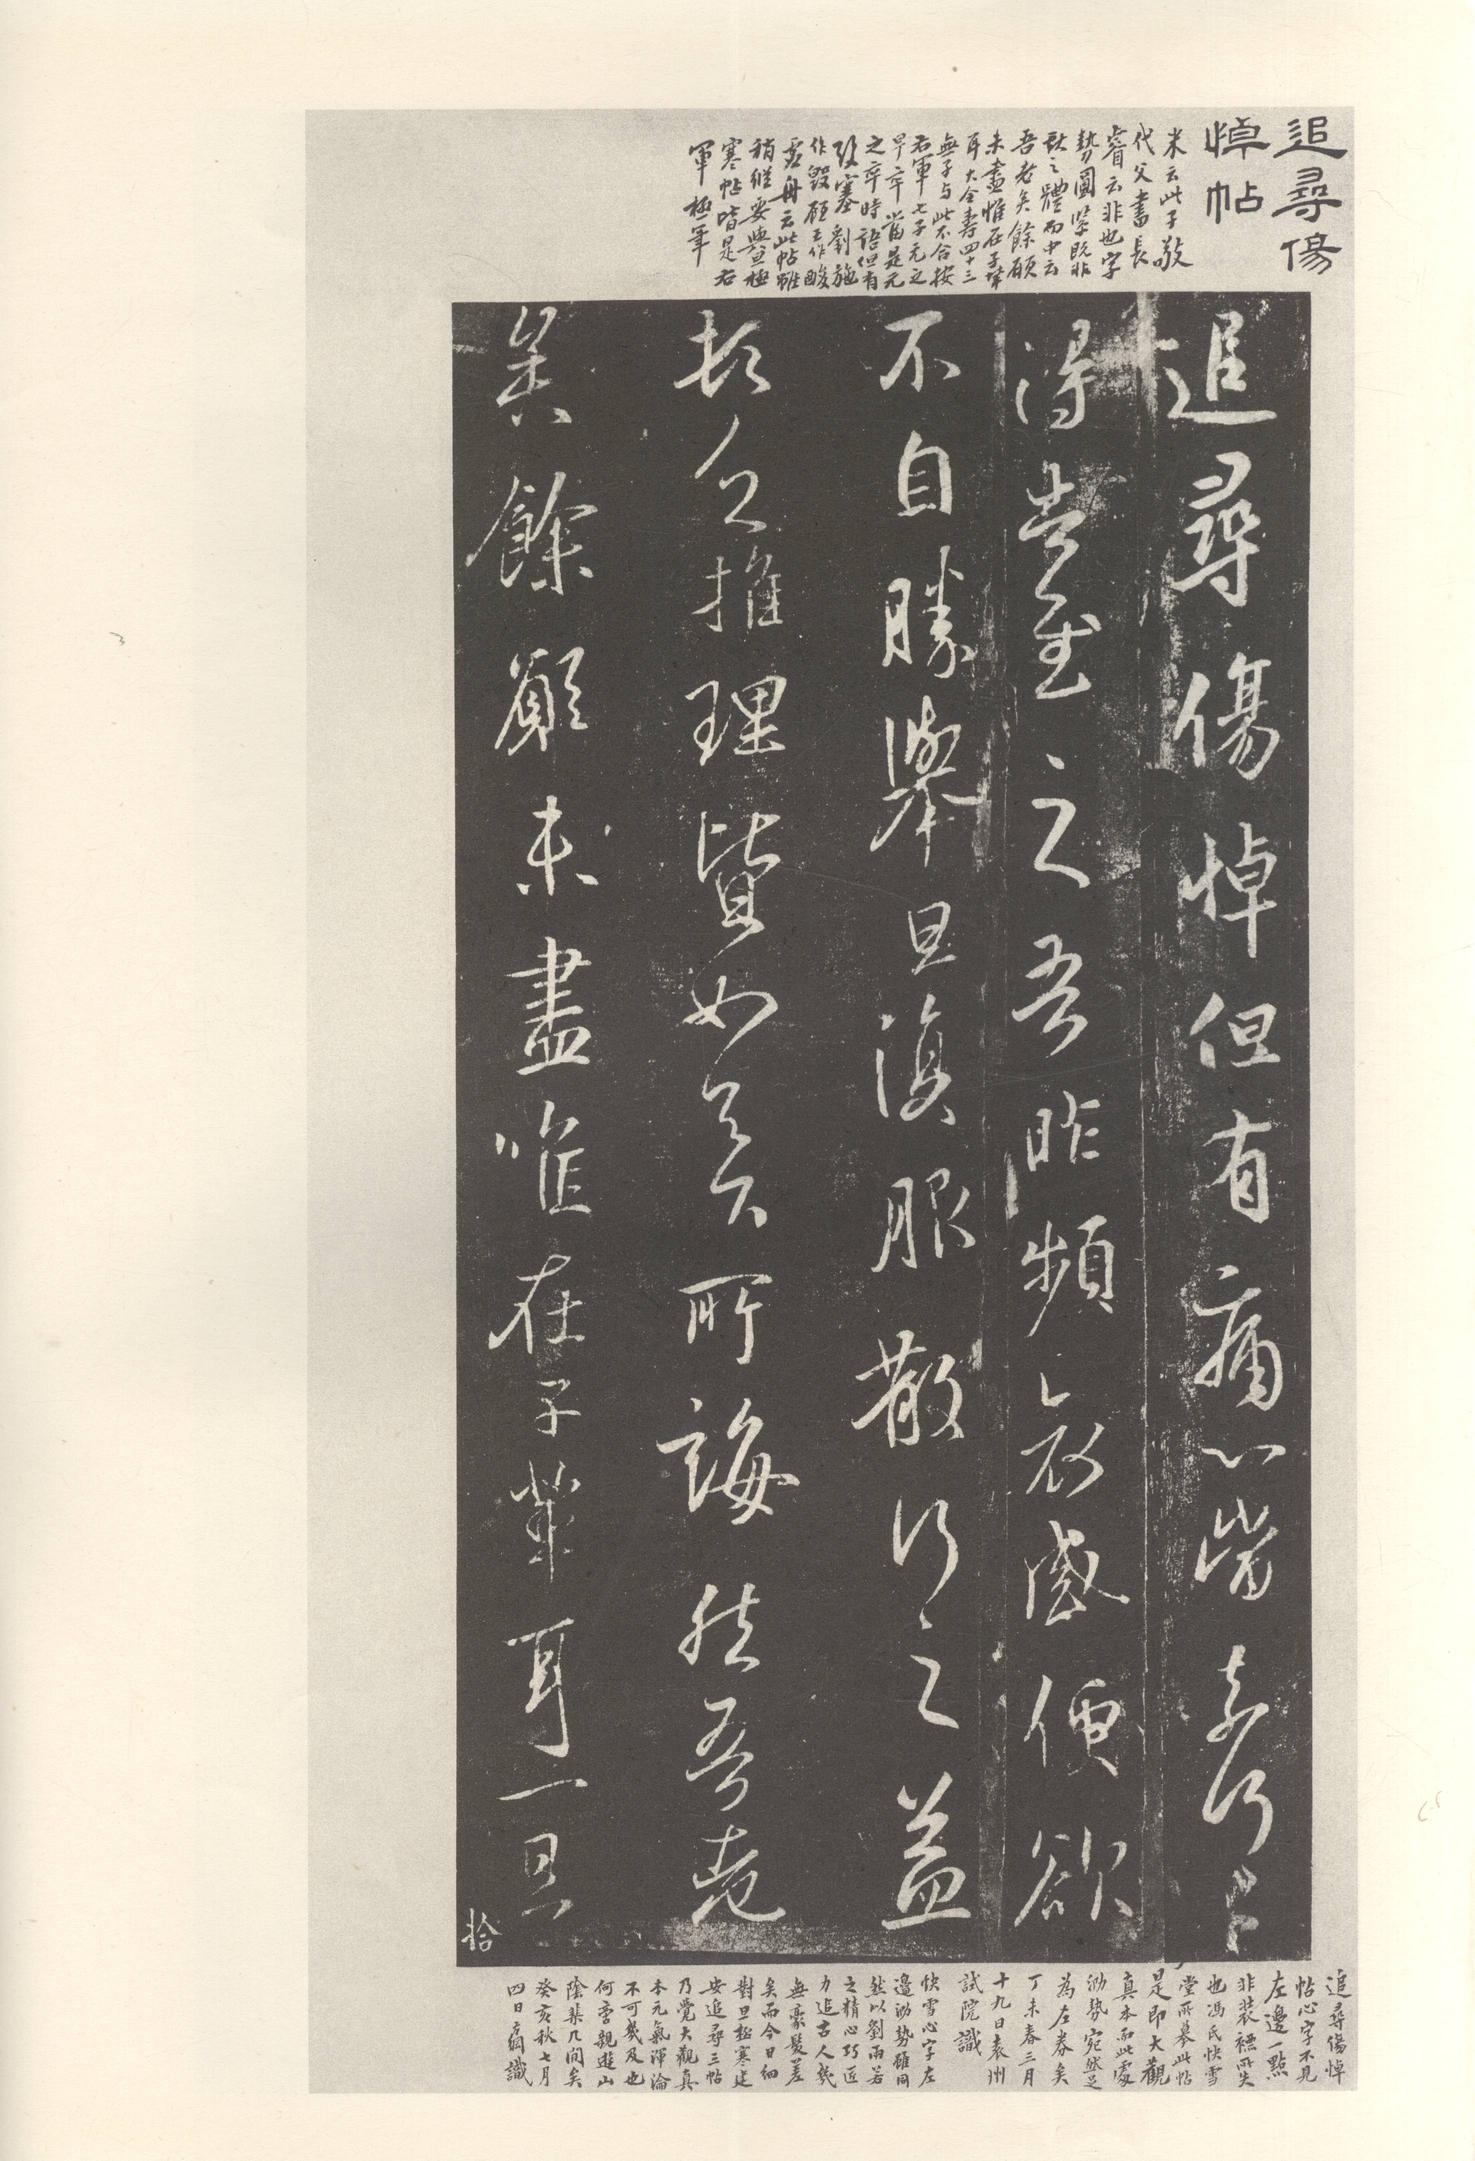 追尋傷
悼帖
米云此子敬
代父書長
睿云非也字
勢圓緊既非
獻之體而中云
吾老矣餘願
未盡惟在子輩
耳大令壽四十三
無子与此不合按
右軍七子元之
早卒當是元
之卒時語但有
塞劉施
作毀顧王作酸
虛舟云此帖雖
稍縱要與旦極
寒帖皆是右
軍極筆
追尋傷悼但有痛心當奈何奈
得告慰之吾昨頻哀感便欲
不自勝舉旦復服散行之益
頓乏推理皆如足下所誨然吾老
矣餘願未盡唯在子輩耳一旦
拾
追尋傷悼
帖心字不見
左邊一點
非裝褾所失
也馮氏快雪
堂所摹此帖
是即大觀
真本而此處
泐勢宛然足
為左券矣
丁未春三月
十九日袁州
試院識
快雪心字左
邊泐勢雖同
然以劉雨若
之精心巧匠
力追古人幾
無豪髮差
矣而今日細
對旦極寒建
安追尋三帖
乃覺大觀真
本元氣渾淪
不可幾及也
何啻親遊山
陰棐几間矣
癸亥秋七月
四日 識